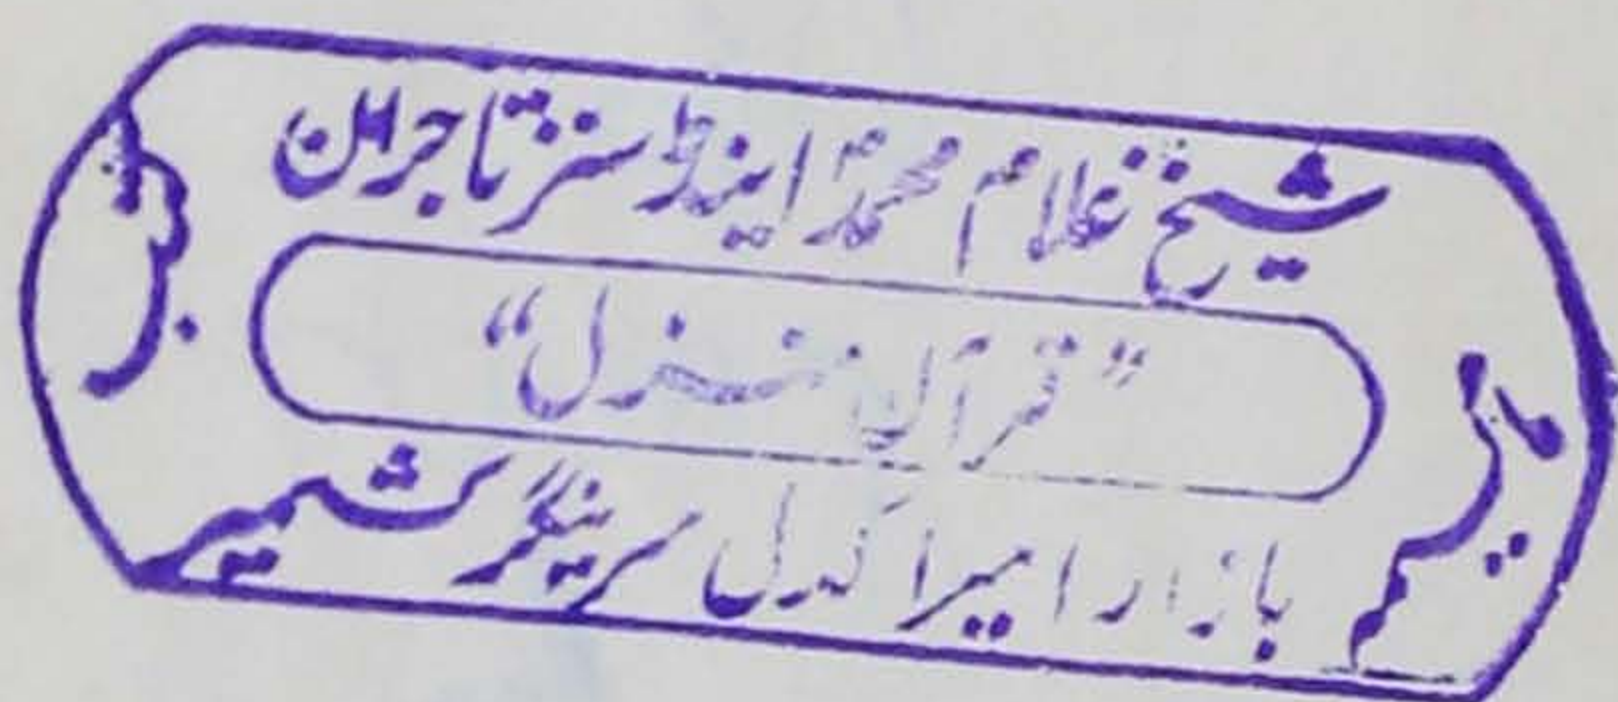 شیخ غلام محمد اینڈ سنز تاجران
"قرآن منزل"
بازار امیراکدل سرینگر کشمیر